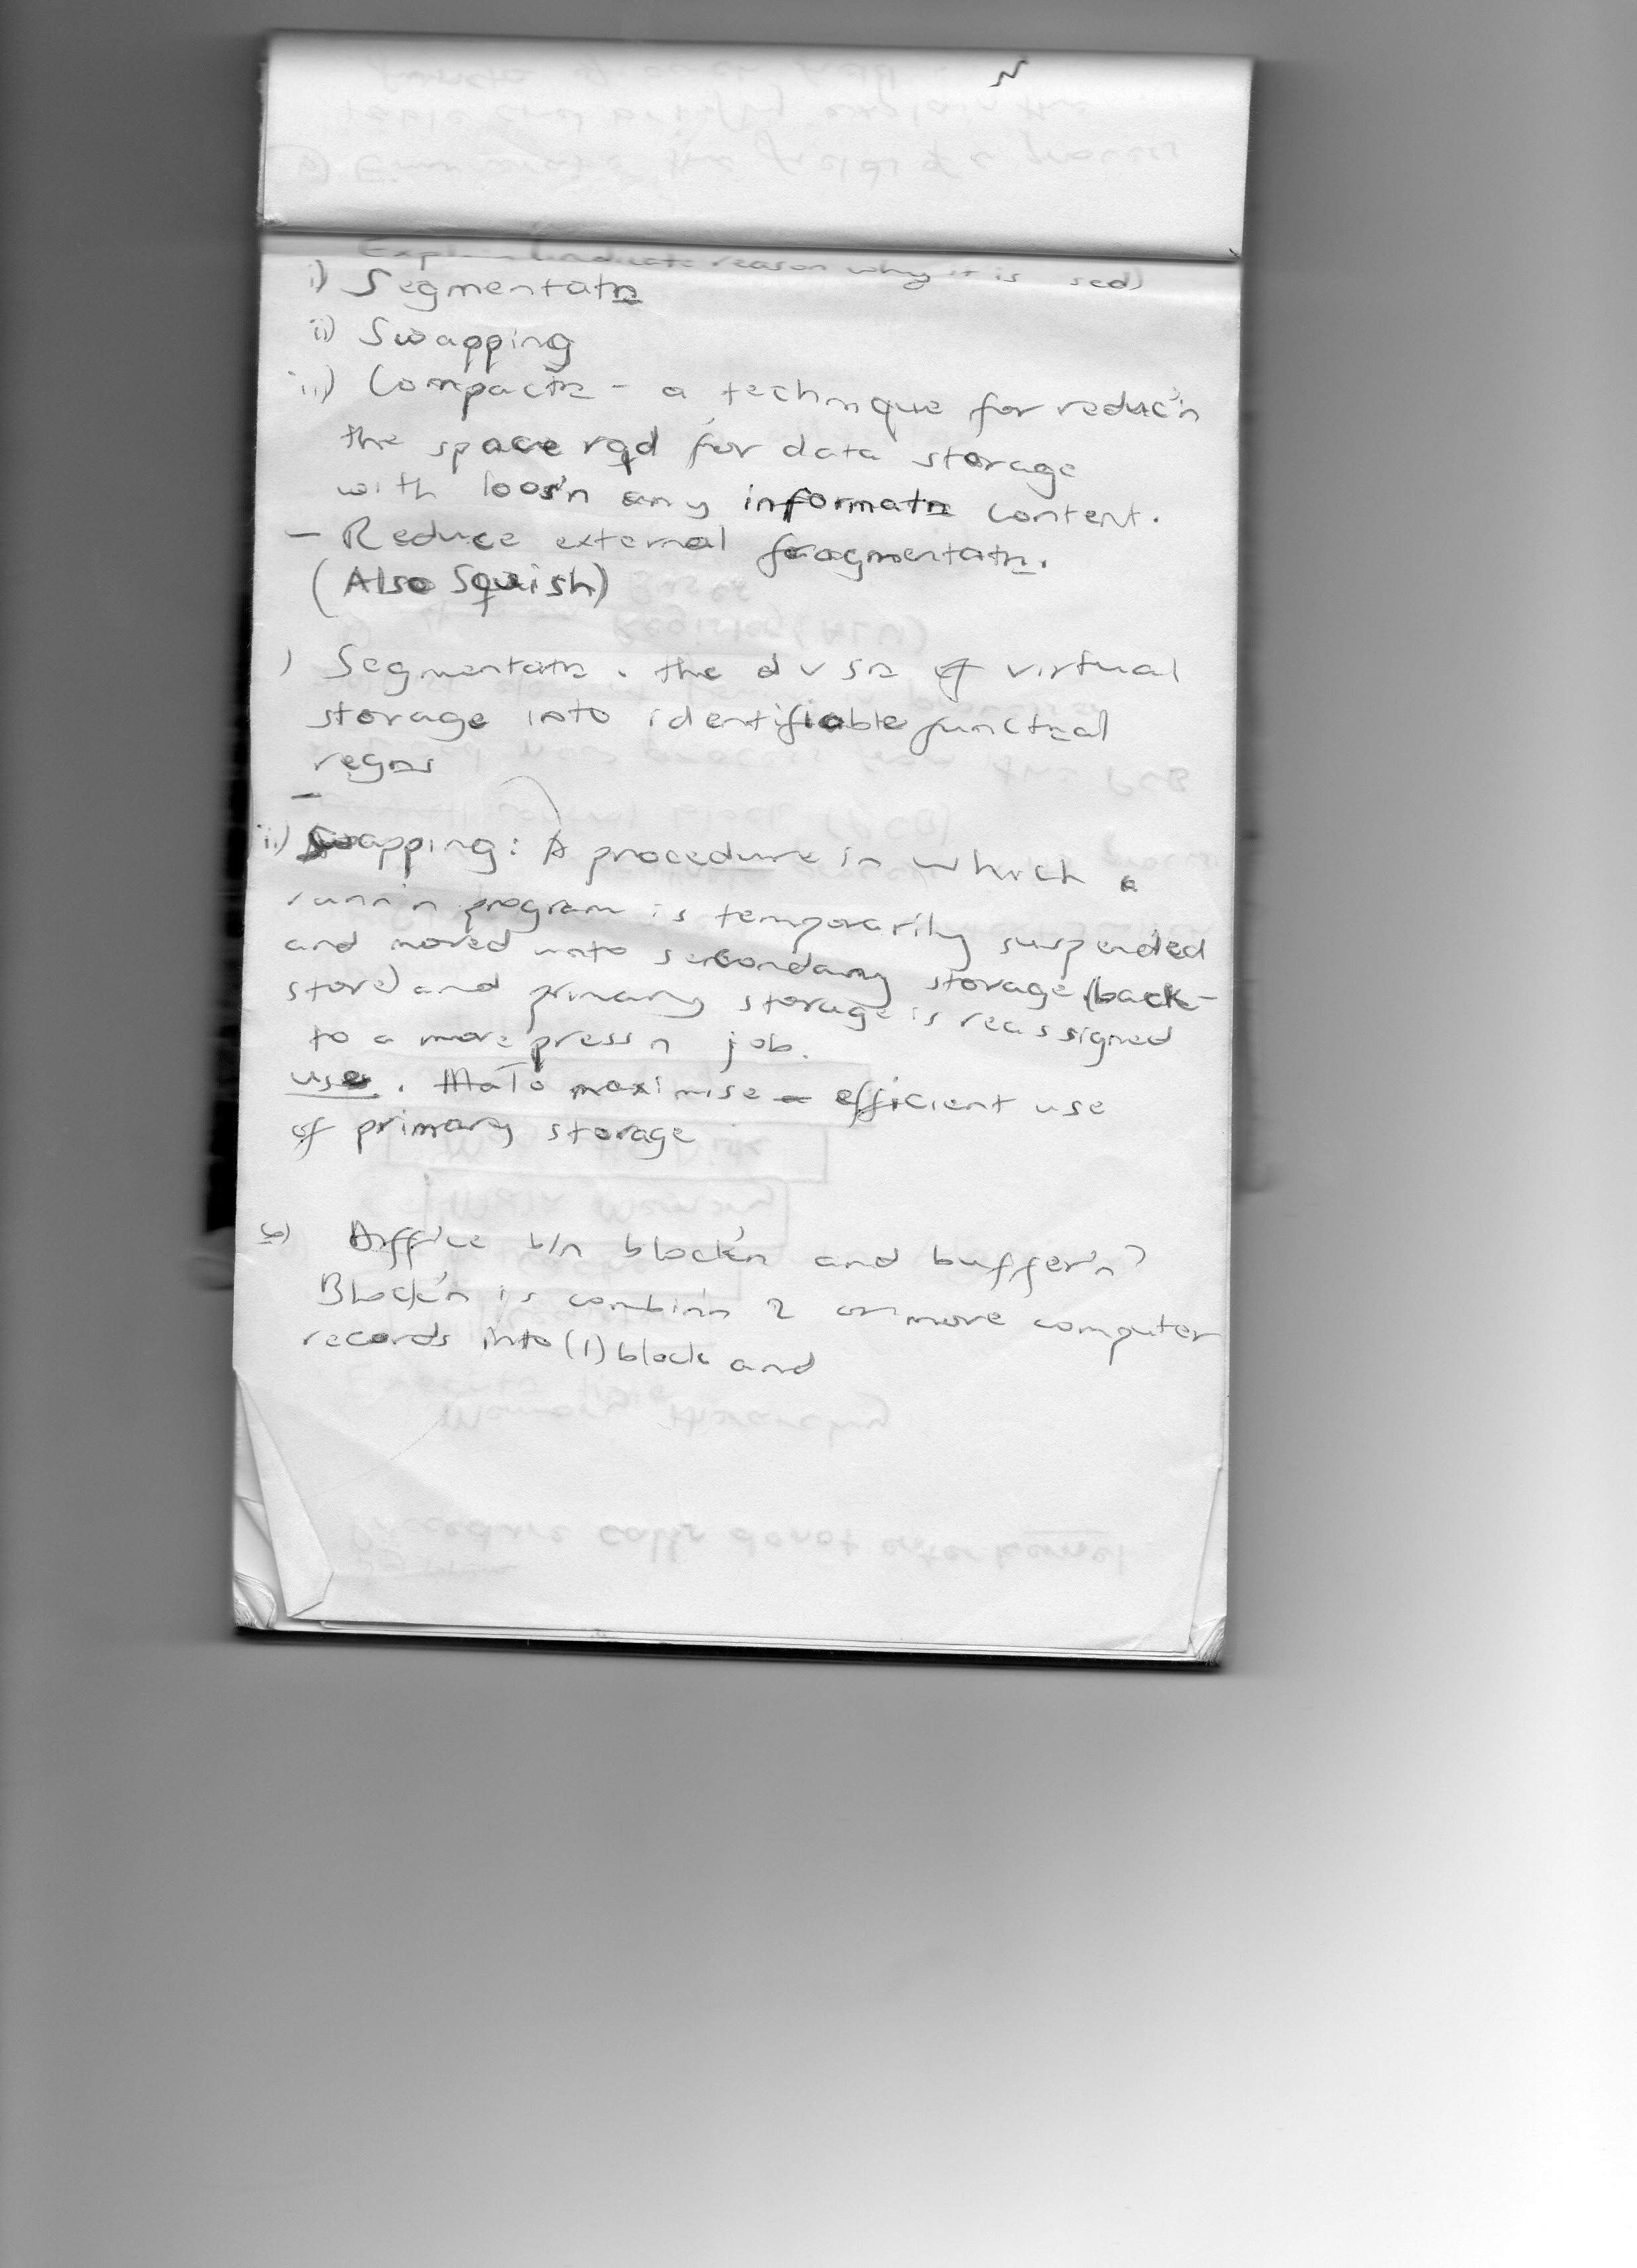 Explain (indicate reason why it is sed)
i) Segmentatn
ii) Swapping
iii) Compactn - a technique for reduc'n
the space rqd for data storage
with loos'n any informatn content.
- Reduce external fragmentatn.
(Also Squish)
) Segmentatn. the dvsn of virtual
storage into identifiable functnal
regns
ii) Swapping: A procedure in which a
runn'n program is temporarily suspended
and moved unto secondary storage (back-
store) and primary storage is reassigned
to a more pressn job.
use. To maximise efficient use
of primary storage
b) Diff'ce b/n block'n and buffer'n?
Block'n is combin'n 2 or more computer
records into (1) block and